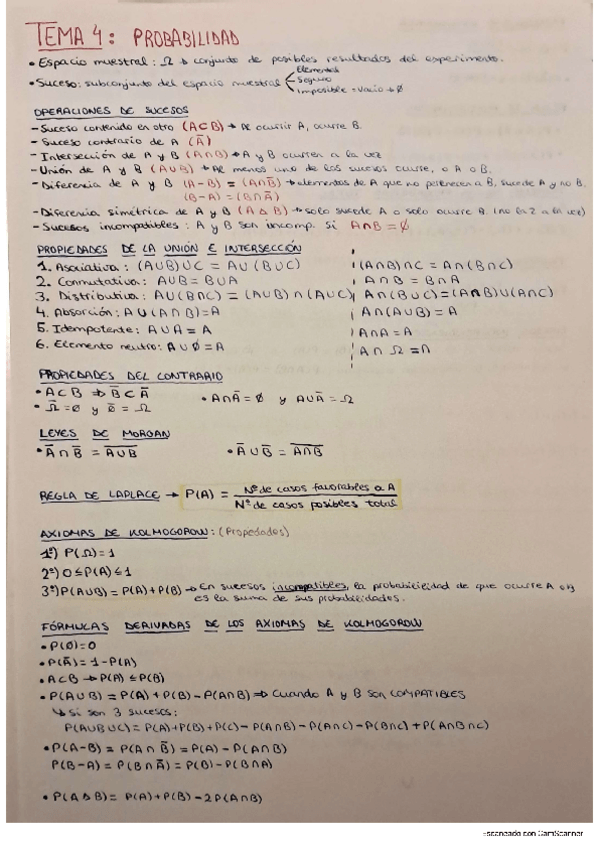 TEMA 4: PROBABILIDAD
• Espacio muestral: Ω → conjunto de posibles resultados del experimento.
• Suceso: subconjunto del espacio muestral
Elemental
Seguro
Imposible = Vacío → ∅
OPERACIONES DE SUCESOS
- Suceso contenido en otro (A⊂B) → Al ocurrir A, ocurre B.
- Suceso contrario de A (Ā)
- Intersección de A y B (A∩B) → A y B ocurren a la vez
- Unión de A y B (A∪B) → Al menos uno de los sucesos ocurre, o A o B.
- Diferencia de A y B (A-B) = (A∩B̄) → elementos de A que no pertenecen a B, sucede A y no B.
(B-A) = (B∩Ā)
- Diferencia simétrica de A y B (A Δ B) → solo sucede A o solo ocurre B. (no la 2 a la vez)
- Sucesos incompatibles: A y B son incomp. si A∩B = ∅
PROPIEDADES DE LA UNIÓN E INTERSECCIÓN
1. Asociativa: (A∪B)∪C = A∪(B∪C) (A∩B)∩C = A∩(B∩C)
2. Conmutativa: A∪B = B∪A A∩B = B∩A
3. Distributiva: A∪(B∩C) = (A∪B)∩(A∪C) A∩(B∪C) = (A∩B)∪(A∩C)
4. Absorción: A∪(A∩B) = A A∩(A∪B) = A
5. Idempotente: A∪A = A A∩A = A
6. Elemento neutro: A∪∅ = A A∩Ω = A
PROPIEDADES DEL CONTRARIO
• A⊂B ⇒ B̄⊂Ā • A∩Ā = ∅ y A∪Ā = Ω
• Ω̄ = ∅ y ∅̄ = Ω
LEYES DE MORGAN
• Ā∩B̄ = \overline{A∪B} • Ā∪B̄ = \overline{A∩B}
REGLA DE LAPLACE → P(A) = Nº de casos favorables a A
Nº de casos posibles total
AXIOMAS DE KOLMOGOROW: (Propiedades)
1º) P(Ω) = 1
2º) 0 ≤ P(A) ≤ 1
3º) P(A∪B) = P(A) + P(B) → En sucesos incompatibles, la probabilidad de que ocurre A o B
es la suma de sus probabilidades.
FÓRMULAS DERIVADAS DE LOS AXIOMAS DE KOLMOGOROW
• P(∅) = 0
• P(Ā) = 1 - P(A)
• A⊂B → P(A) ≤ P(B)
• P(A∪B) = P(A) + P(B) - P(A∩B) ⇒ Cuando A y B son COMPATIBLES
↳ Si son 3 sucesos:
P(A∪B∪C) = P(A) + P(B) + P(C) - P(A∩B) - P(A∩C) - P(B∩C) + P(A∩B∩C)
• P(A-B) = P(A∩B̄) = P(A) - P(A∩B)
P(B-A) = P(B∩Ā) = P(B) - P(B∩A)
• P(A Δ B) = P(A) + P(B) - 2P(A∩B)
Escaneado con CamScanner